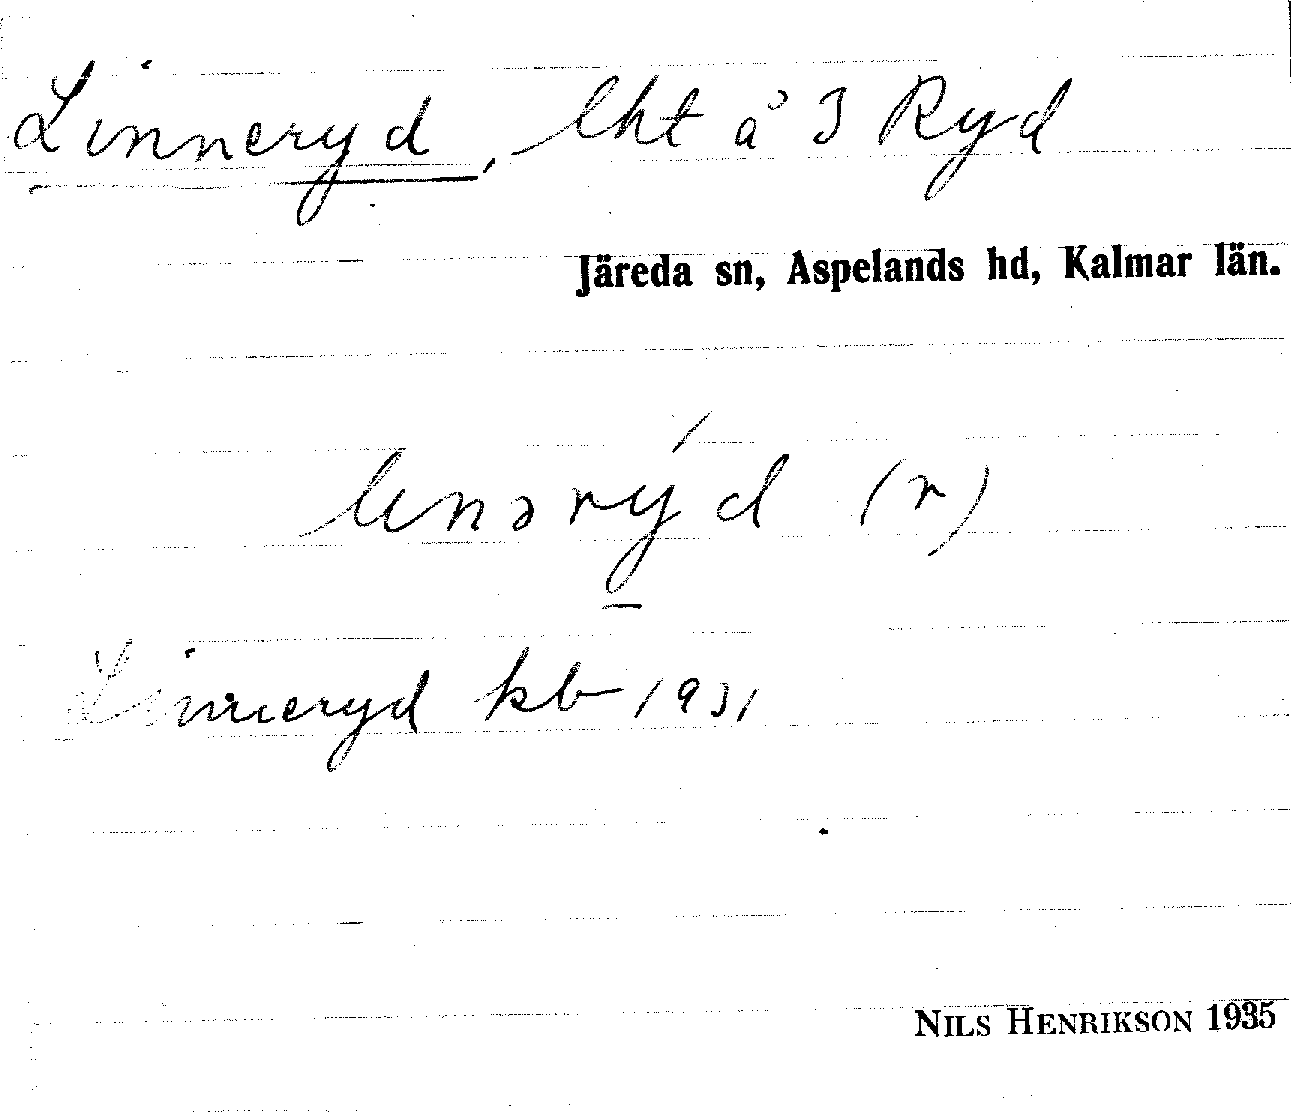 Linneryd, lht å 3 Ryd
Järeda sn, Aspelands hd, Kalmar län.
linərýd (r)
Linneryd kb 1931
NILS HENRIKSON 1935